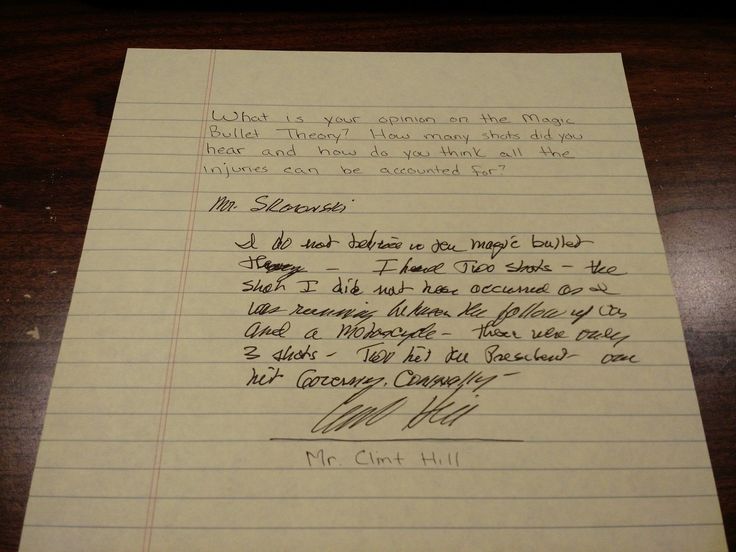 What is your opinion on the Magic
Bullet Theory? How many shots did you
hear and how do you think all the
injuries can be accounted for?
Mr. Skonowski
I do not believe in the magic bullet
theory – I heard Two shots – the
shot I did not hear occurred as I
was running between the follow up car
and a Motorcycle – there were only
3 shots – Two hit the President – one
hit Governor Connally –
Clint Hill
Mr. Clint Hill